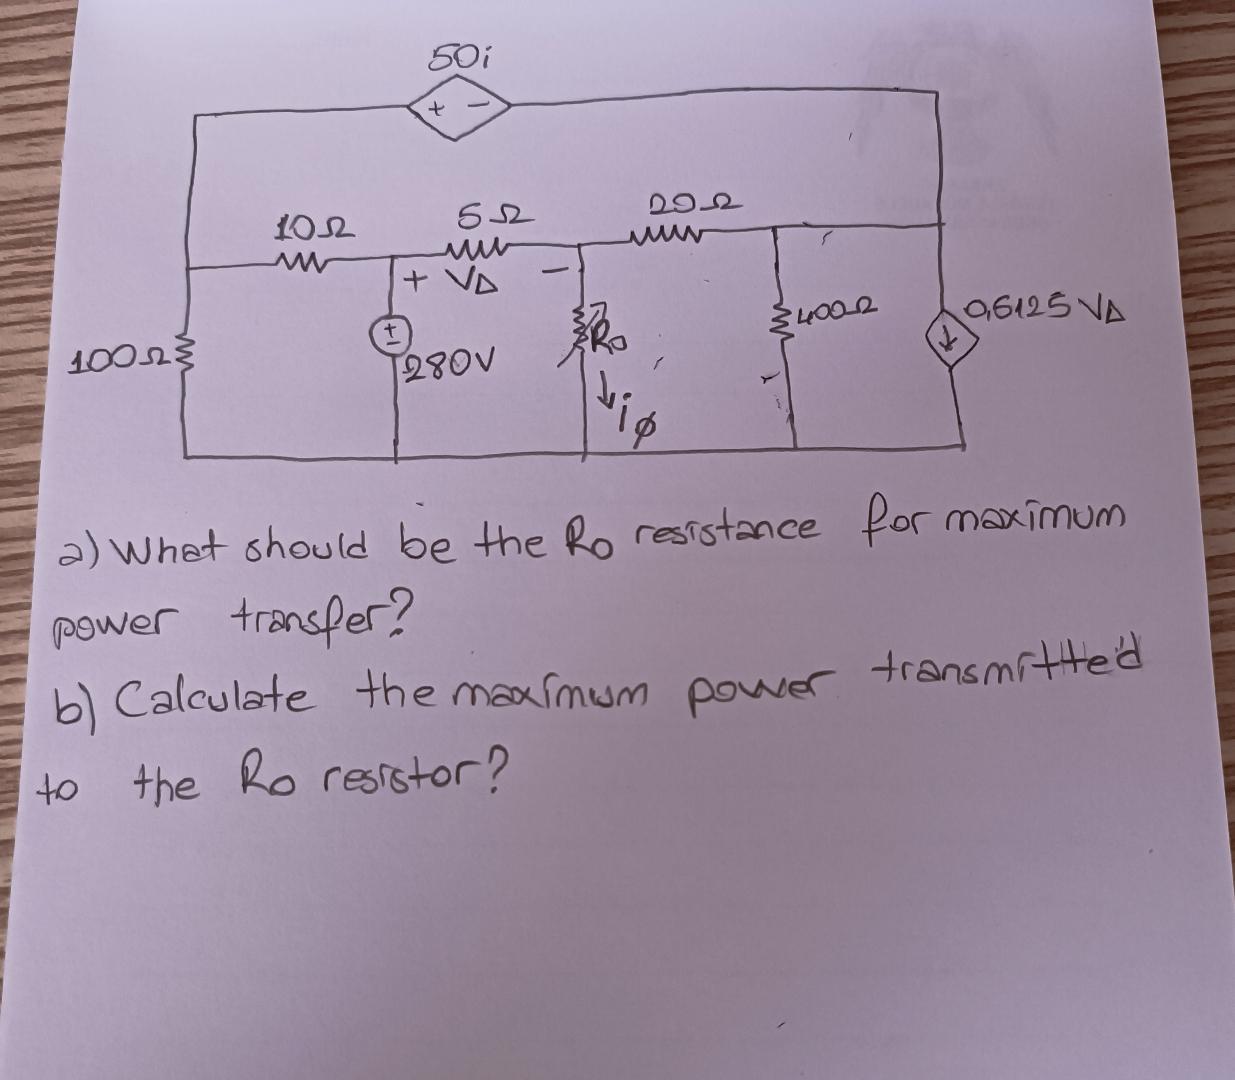 50i
+ −
10Ω
5Ω
20Ω
+ V∆ −
100Ω
+
−
280V
R₀
iø
400Ω
0,5125 V∆
a) What should be the R₀ resistance for maximum
power transfer?
b) Calculate the maximum power transmitted
to the R₀ resistor?